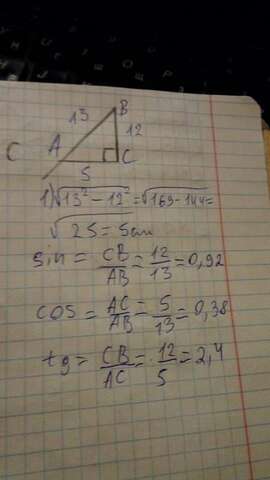 13
B
12
A
C
C
5
1) √13² - 12² = √169 - 144 =
√25 = 5см
sin = CB/AB = 12/13 = 0,92
cos = AC/AB = 5/13 = 0,38
tg = CB/AC = 12/5 = 2,4